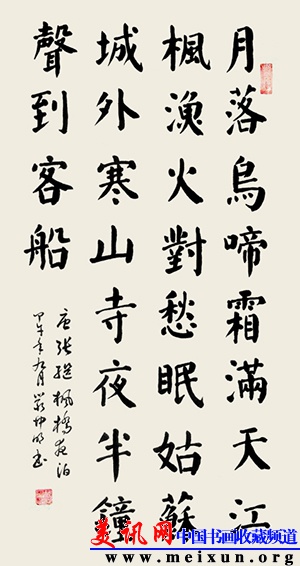 月落烏啼霜滿天江
楓漁火對愁眠姑蘇
城外寒山寺夜半鐘
聲到客船
唐張繼楓橋夜泊
九月
书
美讯网 中国书画收藏频道
www.meixun.org